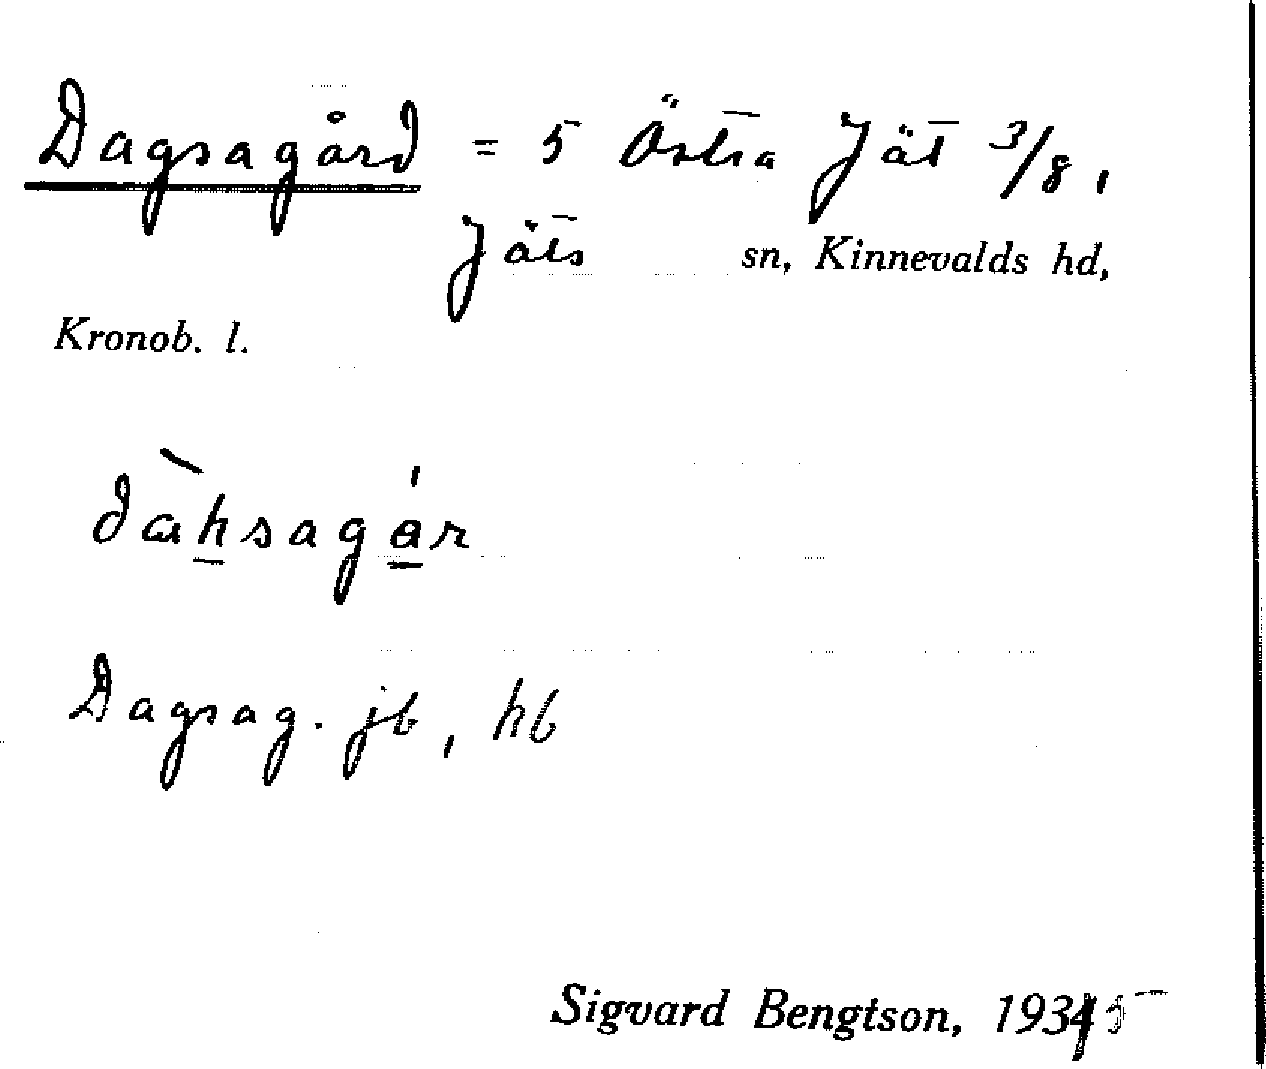 Dagsagård = 5 Östra Jät 3/8,
Jäts sn, Kinnevalds hd,
Kronob. l.
dàhsagár
Dagsag. jb, hb
Sigvard Bengtson, 1935